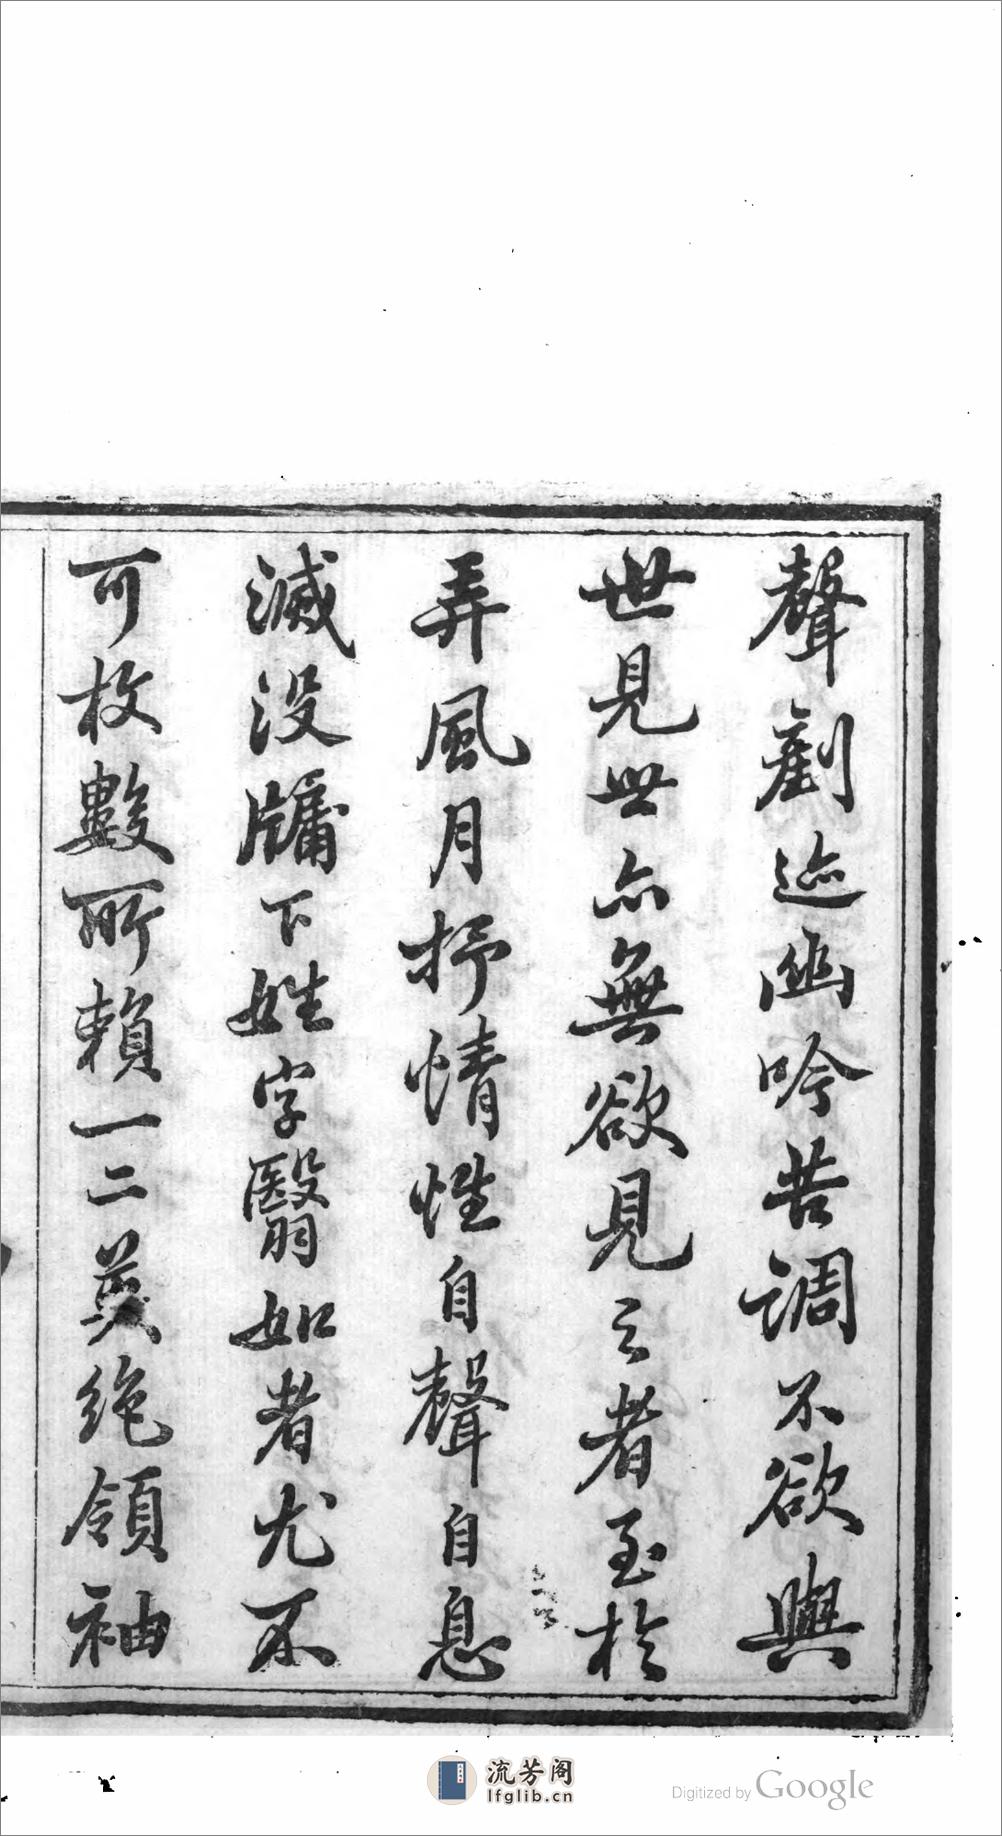 聲剷迹幽吟苦調不欲與
世見世亦無欲見之者至於
弄風月抒情性自聲自息
滅没牖下姓字翳如者尤不
可枚數所賴一二英絶領袖
流芳阁
lfglib.cn
Digitized by Google